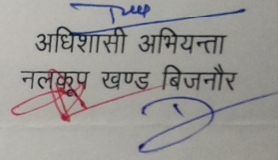 अधिशासी अभियन्ता
नलकूप खण्ड बिजनौर